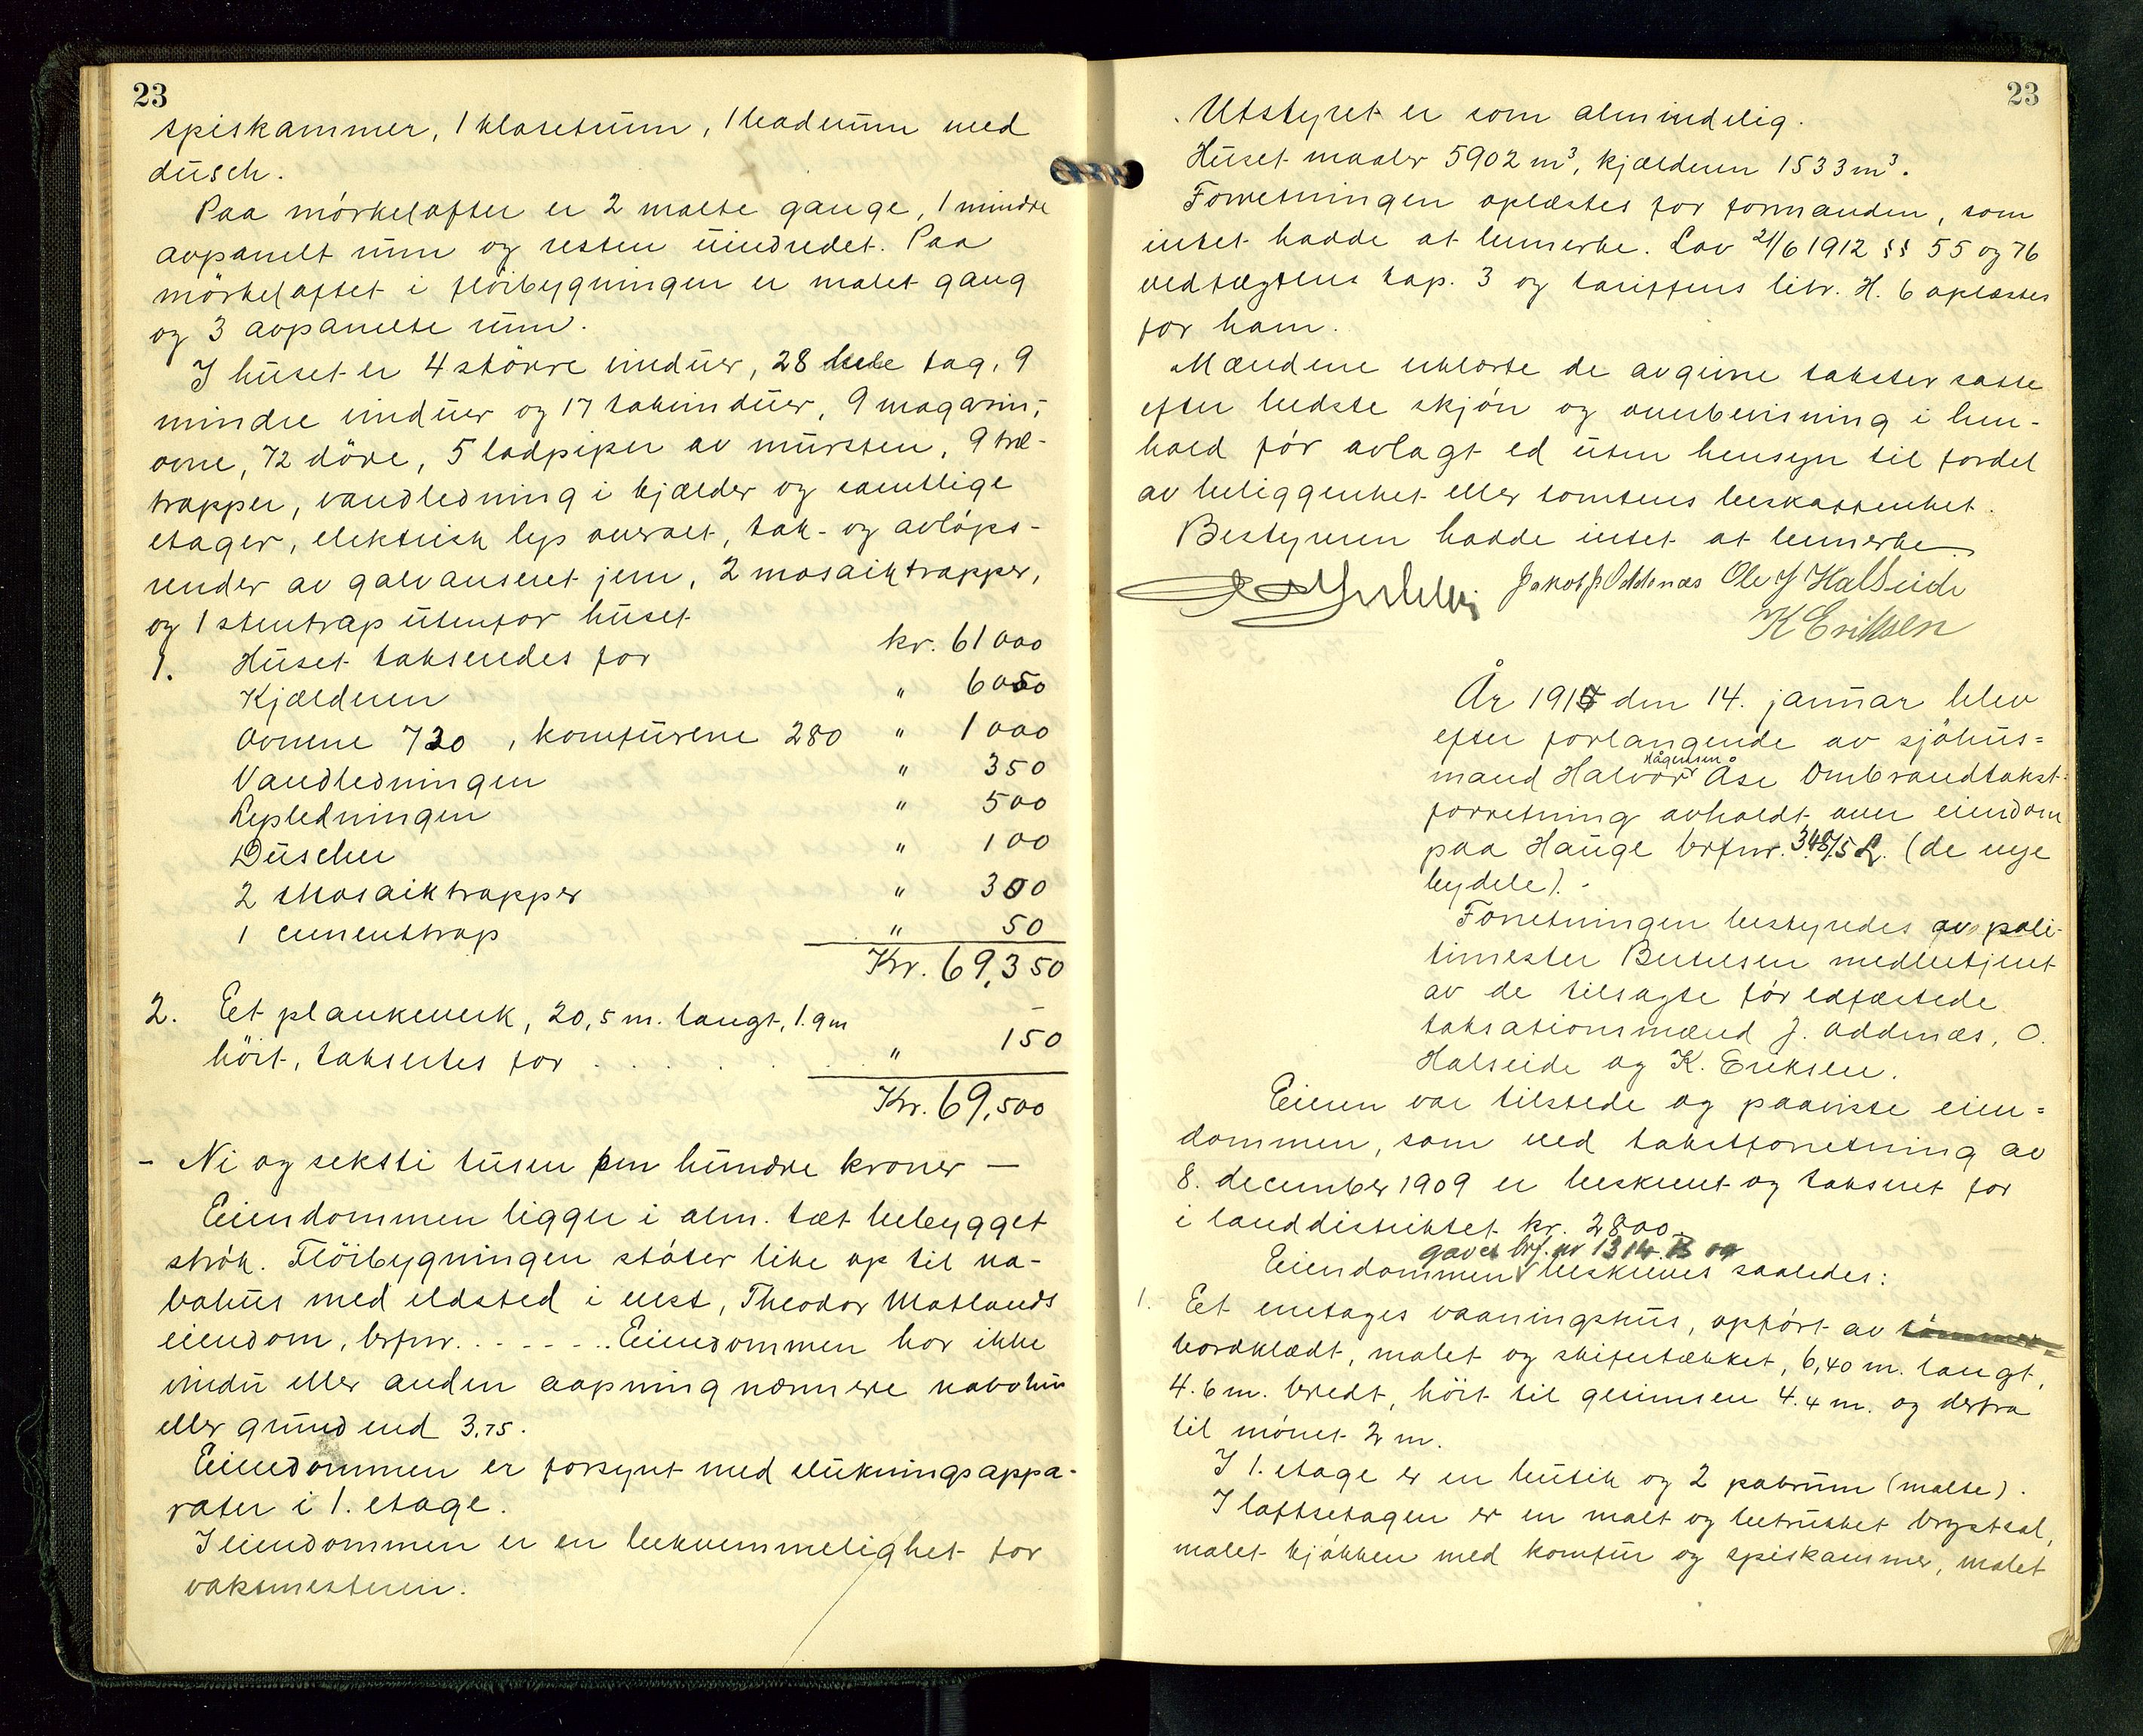 23
spiskammer, 1 klosetrum, 1 baderum med
dusch.
Paa mörkeloftet er 2 malte gange, 1 mindre
avpanelt rum og resten uindredet. Paa
mörkeloftet i flöibygningen er malet gang
og 3 avpanelte rum.
I huset er 4 större vinduer, 28 hele fag, 9
mindre vinduer og 17 takvinduer, 9 magasin-
ovne, 72 döre, 5 lodpiper av mursten, 9 træ-
trapper, vandledning i kjælder og samtlige
etager, elektrisk lys overalt, tak- og avlöps-
render av galvaniseret jern, 2 mosaiktrapper,
og 1 stentrap utenfor huset
1. Huset takseredes for kr. 61 000
Kjælderen " 6050
Ovnene 720, komfurene 280 " 1000
Vandledningen " 350
Lysledningen " 500
Duscher " 100
2 Mosaiktrapper " 300
1 cementtrap " 50
Kr. 69,350
2. Et plankeverk, 20,5 m. langt, 1.9 m
höit, taksertes for . . . . " 150
Kr. 69,500
- Ni og seksti tusen fem hundre kroner -
Eiendommen ligger i alm. tæt bebygget
strök. Flöibygningen stöter like op til na-
bohus med ildsted i vest, Theodor Matlands
eiendom, brfnr. . - - - . . Eiendommen har ikke
vindu eller anden aapning nærmere nabohus
eller grund end 3.75.
Eiendommen er forsynt med slukningsappa-
rater i 1. etage.
I eiendommen er en bekvemmelighet for
vaktmesteren.
23
Utstyret er som almindelig.
Huset maaler 5902 m³, kjælderen 1533 m³.
Forretningen oplæstes for formanden, som
intet hadde at bemerke. Lov 21/6 1912 §§ 55 og 76
vedtægtens kap. 3 og tariffens litr. H. 6 oplæstes
for ham.
Mændene erklærte de avgivne takster satte
efter bedste skjön og overbevisning i hen-
hold för avlagt ed uten hensyn til fordel
av beliggenhet eller tomtens beskaffenhet.
Bestyreren hadde intet at bemerke.
Jakob J. Oddenæs Ole J Halseide
K Eriksen
År 1915 den 14. januar blev
efter forlangende av sjöhus=
mand Halvor Hågensen Åse Ombrandtakst-
forretning avholdt over eiendom
paa Hauge brfnr. 348/5 L. (de nye
bydele). -
Forretningen bestyredes av poli-
timester Bentsen medbetjent
av de tilsagte för edfæstede
taksationsmænd J. Oddenæs, O.
Halseide og K. Eriksen.
Eieren var tilstede og paaviste eien=
dommen, som ved takstforretning av
8. december 1909 er beskrevet og takseret for
i landdistriktet kr. 2800.
gaves brf. nr 1314 B og
Eiendommen beskrives saaledes:
1. Et enetages vaaningshus, opfört av tömmer,
bordklædt, malet og skifertækket, 6,40 m. langt,
4.6 m. bredt, höit til gesimsen 4.4 m. og derfra
til mönet 2 m.
I 1. etage er en butik og 2 pakrum (malte).
I loftsetagen er en malt og betrukket brystsal,
malet kjökken med komfur og spiskammer, malet